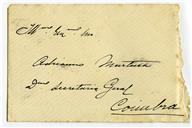 Illmo Exmo Snr
Adriano Monteiro
Dmo Secretario Geral
Coimbra